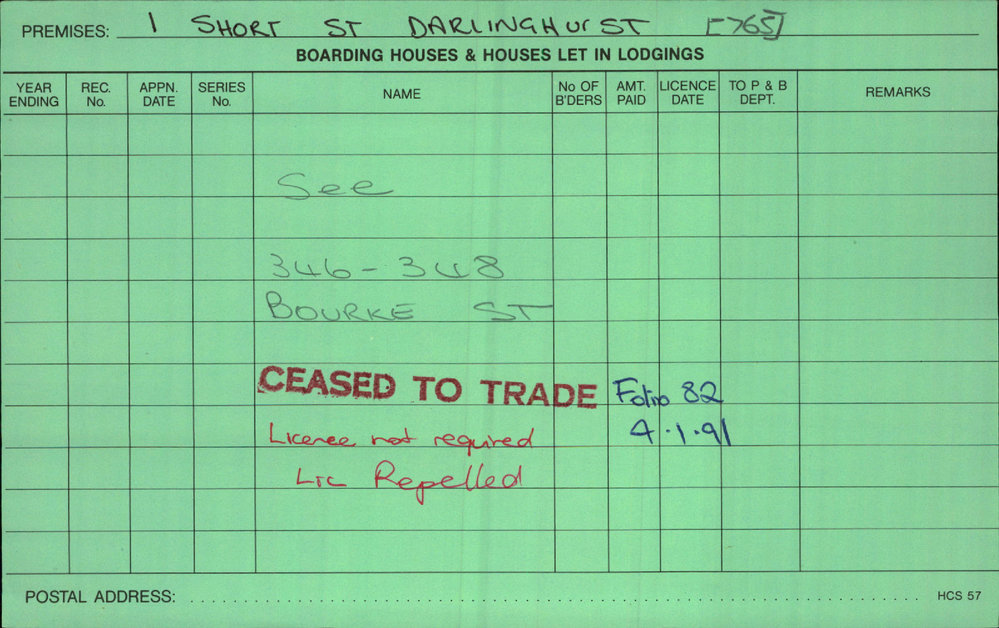 PREMISES: 1 SHORT ST DARLINGHURST [765]
BOARDING HOUSES & HOUSES LET IN LODGINGS
YEAR ENDING REC. No. APPN. DATE SERIES No. NAME No OF B'DERS AMT. PAID LICENCE DATE TO P & B DEPT. REMARKS
See
346-348
BOURKE ST
CEASED TO TRADE Folio 82
Licence not required 4.1.91
Lic Repelled
POSTAL ADDRESS: HCS 57